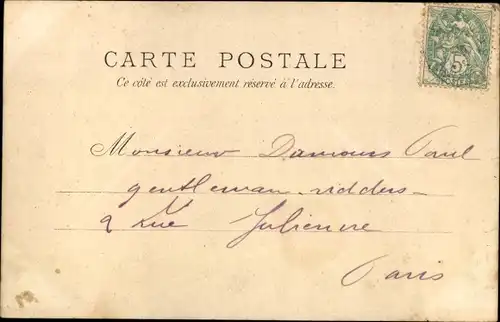 CARTE POSTALE
Ce côté est exclusivement réservé à l'adresse.
5
Monsieur Damours Paul
gentleman-ridders-
2 Rue Julienne
Paris